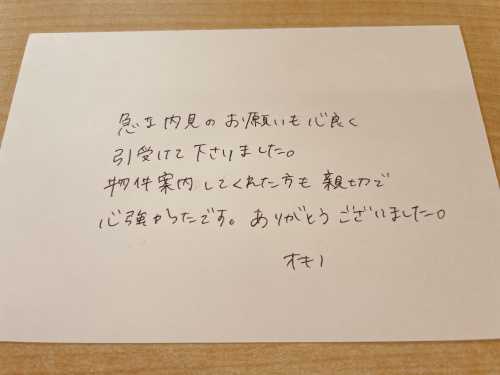 急な内見のお願いも心良く
引受けて下さいました。
物件案内してくれた方も親切で
心強かったです。ありがとうございました。
オキノ